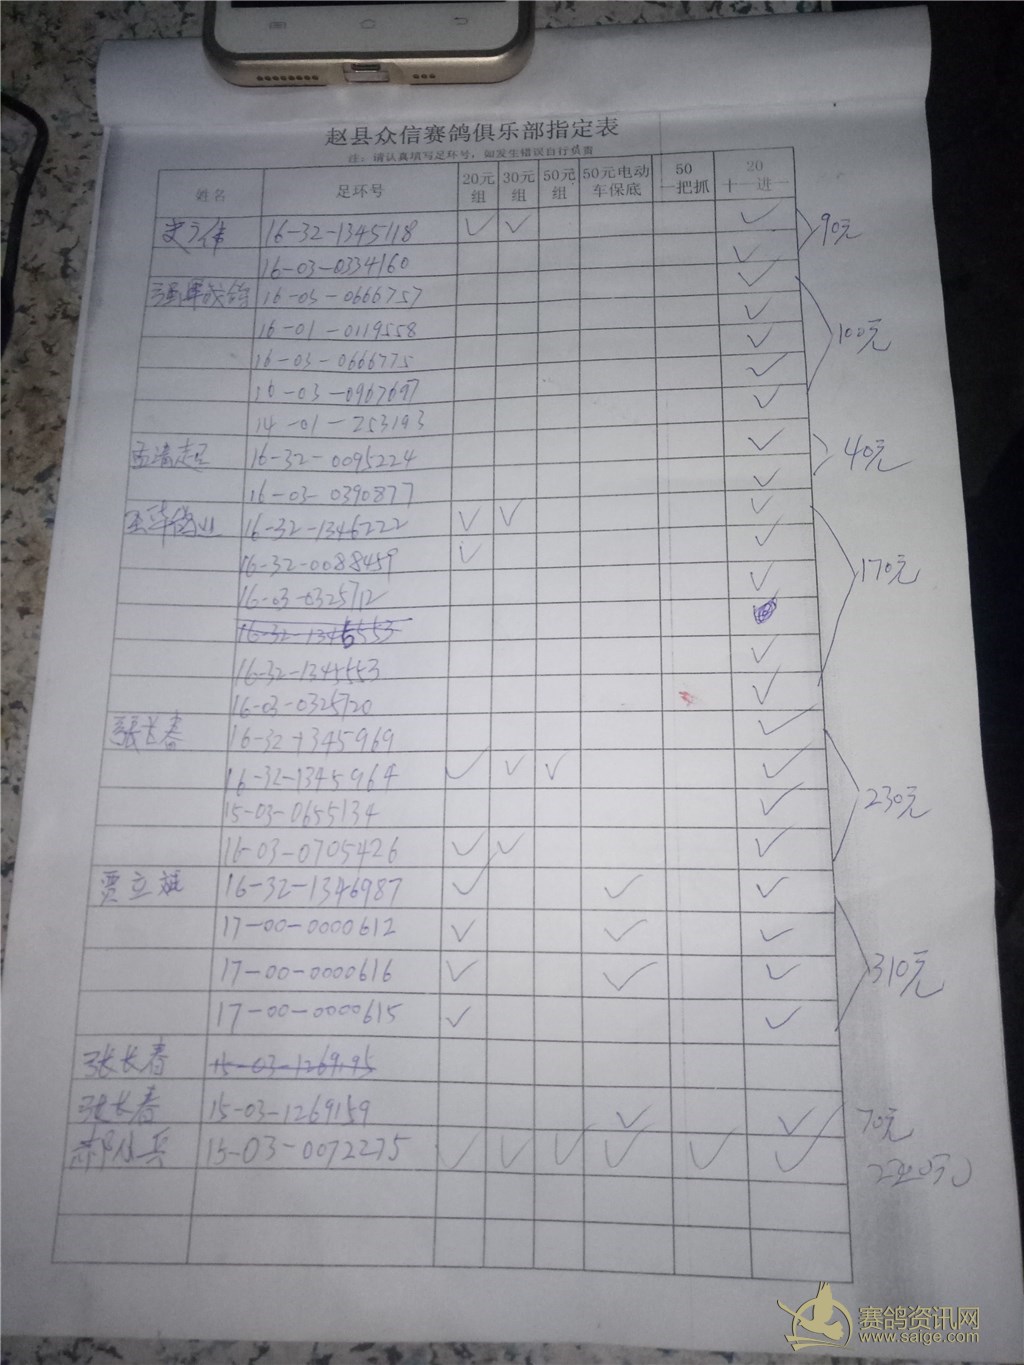 赵县众信赛鸽俱乐部指定表
注：请认真填写足环号，如发生错误自行负责
姓名 足环号 20元组 30元组 50元组 50元电动车保底 50一把抓 20十一进一
16-32-1345118 ✓ ✓ ✓ 90元
16-03-0334160 ✓
16-03-0666757 ✓
16-01-0119558 ✓ 100元
16-03-0666775 ✓
16-03-0967697 ✓
14-01-253193 ✓
16-32-0095224 ✓ 40元
16-03-0390877 ✓
16-32-1346222 ✓ ✓ ✓
16-32-0088459 ✓ ✓
16-03-0325712 ✓ 170元
16-32-1346553
16-32-1345553 ✓
16-03-0325720 ✓
张长春 16-32-1345969 ✓
16-32-1345964 ✓ ✓ ✓ ✓
15-03-0655134 ✓ 230元
16-03-0705426 ✓ ✓ ✓
贾立斌 16-32-1346987 ✓ ✓ ✓
17-00-0000612 ✓ ✓ ✓
17-00-0000616 ✓ ✓ ✓ 310元
17-00-0000615 ✓ ✓
张长春
张长春 15-03-1269159 ✓ ✓ 70元
15-03-0072275 ✓ ✓ ✓ ✓ ✓ ✓
赛鸽资讯网
www.saige.com